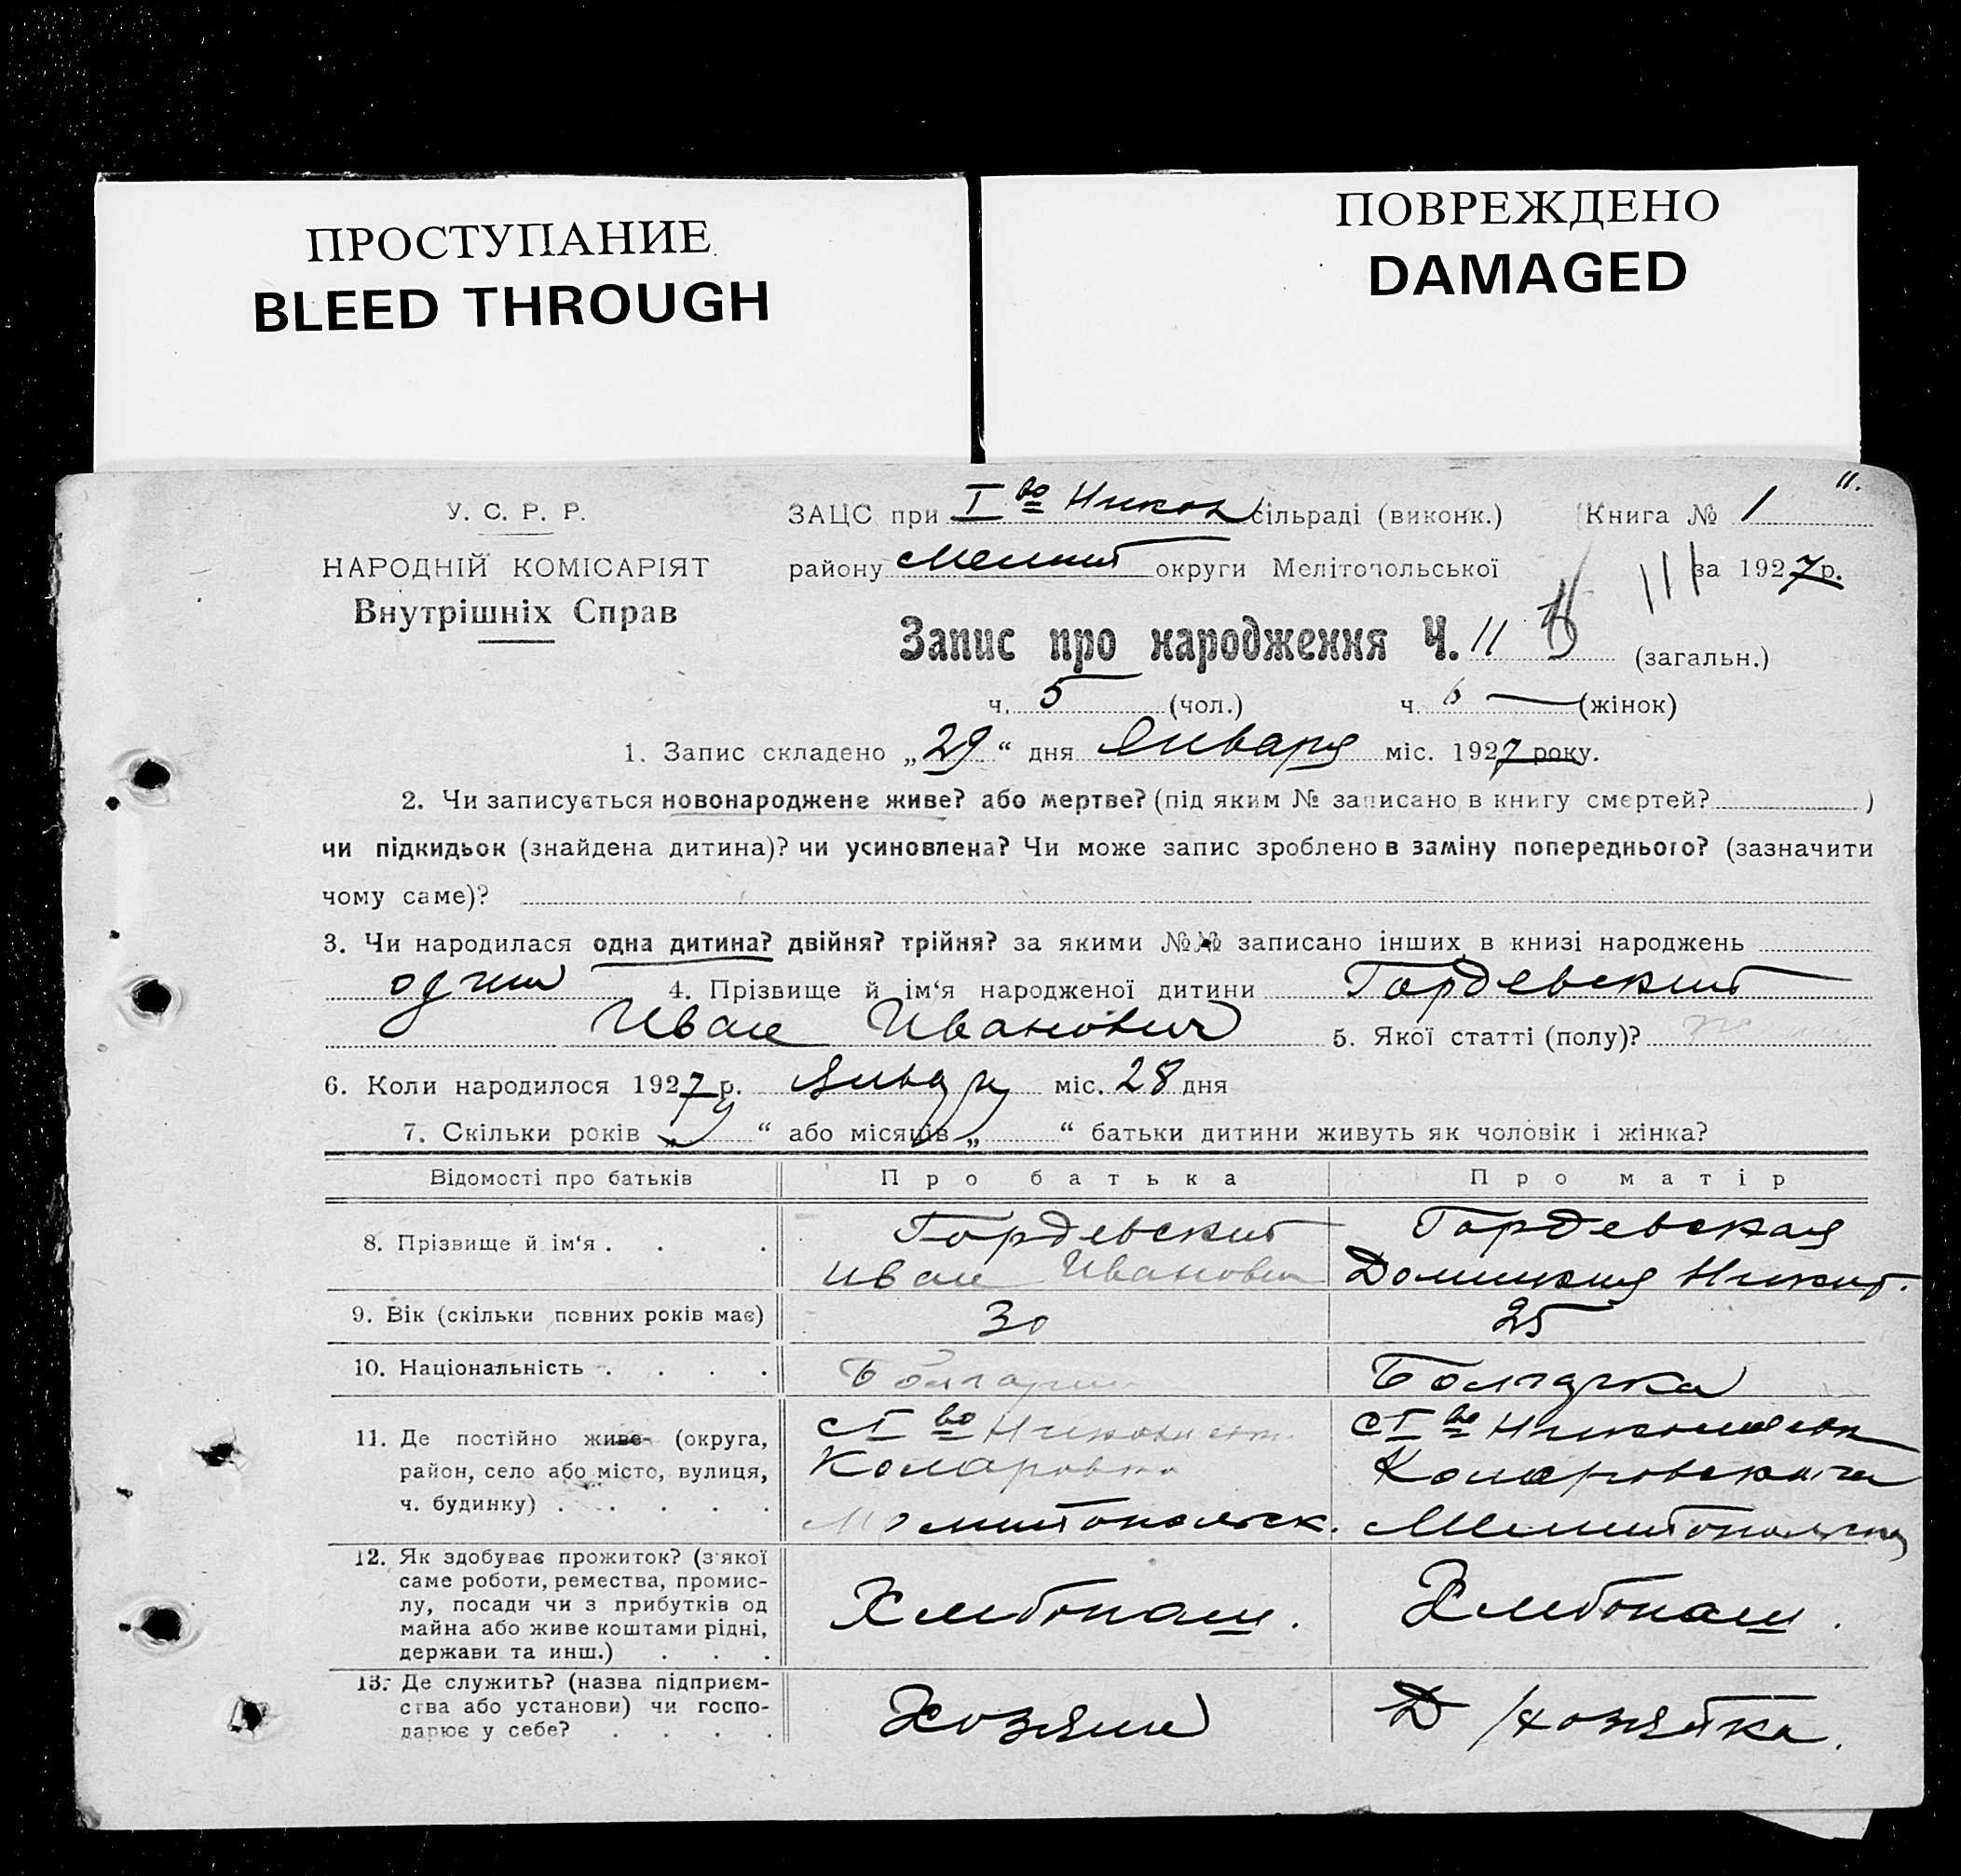 ПРОСТУПАНИЕ
BLEED THROUGH
ПОВРЕЖДЕНО
DAMAGED
11.
У. С. Р. Р.
НАРОДНІЙ КОМІСАРІЯТ
Внутрішніх Справ
ЗАЦС при I во Никол сільраді (виконк.) Книга № 1
району Мелит округи Мелітопольської за 1927 р.
Запис про народження Ч. 11 (загальн.)
ч. 5 (чол.) ч. 6 (жінок)
1. Запис складено „29“ дня Января міс. 1927 року.
2. Чи записується новонароджене живе? або мертве? (під яким № записано в книгу смертей? )
чи підкидьок (знайдена дитина)? чи усиновлена? Чи може запис зроблено в заміну попереднього? (зазначити
чому саме)?
3. Чи народилася одна дитина? двійня? трійня? за якими №№ записано інших в книзі народжень
один 4. Прізвище й ім‘я народженої дитини Гордевский
Иван Иванович 5. Якої статті (полу)?
6. Коли народилося 1927 р. Январ міс. 28 дня
7. Скільки років „9“ або місяців „ “ батьки дитини живуть як чоловік і жінка?
Відомості про батьків Про батька Про матір
8. Прізвище й ім‘я . . . Гордевский Гордевская
Иван Иванович Доминикия Никит.
9. Вік (скільки повних років має) 30 25
10. Національність . . . . Болгарин Болгарка
11. Де постійно живе (округа, с I во Николаевк с I во Николаевк
район, село або місто, вулиця, Комаровка Комаровскага
ч. будинку) . . . . . Мелитопольск. Мелитопольска
12. Як здобуває прожиток? (з якої
саме роботи, ремества, промис-
лу, посади чи з прибутків од Хлебопаш. Хлебопаш.
майна або живе коштами рідні,
держави та инш.) . . .
13. Де служить? (назва підприєм-
ства або установи) чи госпо- Хозяин Д/хозяйка.
дарює у себе? . . . .